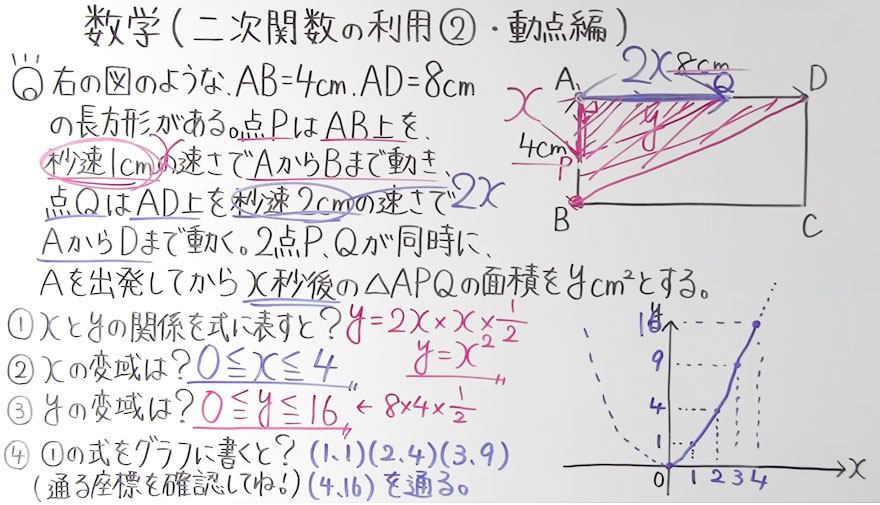 数学(二次関数の利用②・動点編)
右の図のような、AB=4cm、AD=8cm
の長方形がある。点PはAB上を、
秒速1cmの速さでAからBまで動き、
x
点QはAD上を秒速2cmの速さで
2x
AからDまで動く。2点P、Qが同時に、
Aを出発してからx秒後の△APQの面積をycm²とする。
①xとyの関係を式に表すと? y=2x×x×1/2
y=x²
②xの変域は? 0≦x≦4
③yの変域は? 0≦y≦16 ←8×4×1/2
④①の式をグラフに書くと? (1.1)(2.4)(3.9)
(通る座標を確認してね!) (4.16)を通る。
2x
8cm
A
Q
D
x
y
4cm
P
B
C
y
16
9
4
1
0
1 2 3 4
x